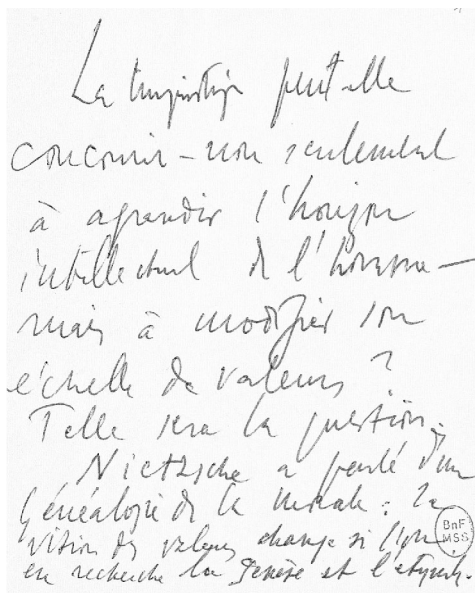 La linguistiq peut-elle
concourir – non seulement
à agrandir l'horizon
intellectuel de l'homme –
mais à modifier son
échelle de valeurs ?
Telle sera la question.
Nietzsche a parlé d'une
Généalogie de la morale : la
vision des valeurs change si l'on
en recherche la genèse et l'étymol.
BnF
MSS